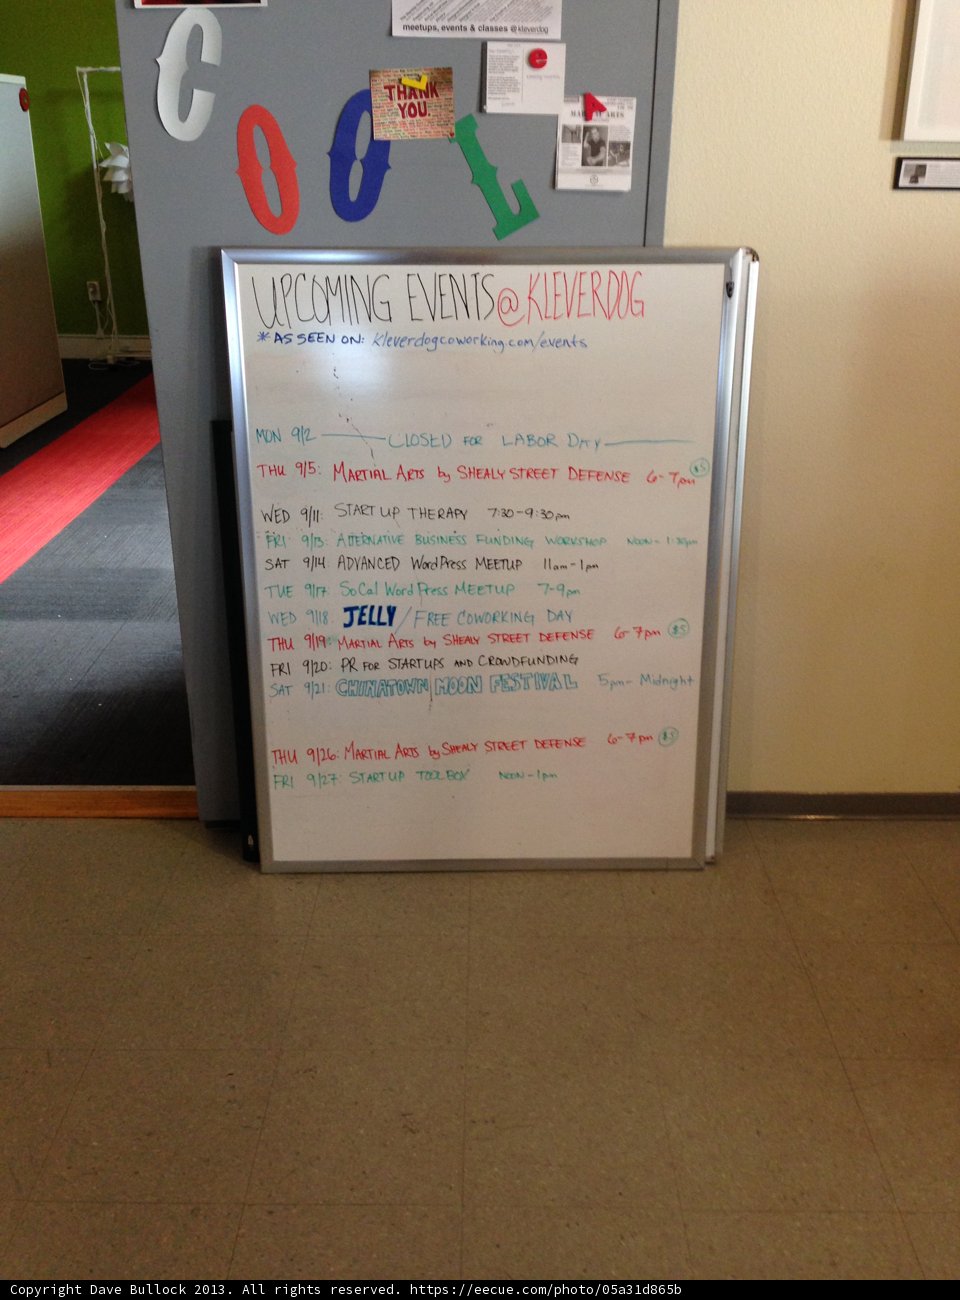 meetups, events & classes @kleverdog
THANK
YOU.
C
O
O
L
UPCOMING EVENTS@KLEVERDOG
*AS SEEN ON: kleverdogcoworking.com/events
MON 9/2 CLOSED FOR LABOR DAY
THU 9/5: MARTIAL ARTS by SHEALY STREET DEFENSE 6-7pm $5
WED 9/11: START UP THERAPY 7:30-9:30pm
FRI 9/13: ALTERNATIVE BUSINESS FUNDING WORKSHOP NOON-1:30pm
SAT 9/14: ADVANCED WordPress MEETUP 11am-1pm
TUE 9/17: SoCal WordPress MEETUP 7-9pm
WED 9/18: JELLY/FREE COWORKING DAY
THU 9/19: MARTIAL ARTS by SHEALY STREET DEFENSE 6-7pm $5
FRI 9/20: PR FOR STARTUPS AND CROWDFUNDING
SAT 9/21: CHINATOWN MOON FESTIVAL 5pm-Midnight
THU 9/26: MARTIAL ARTS by SHEALY STREET DEFENSE 6-7pm $5
FRI 9/27: STARTUP TOOLBOX NOON-1pm
Copyright Dave Bullock 2013. All rights reserved. https://eecue.com/photo/05a31d865b